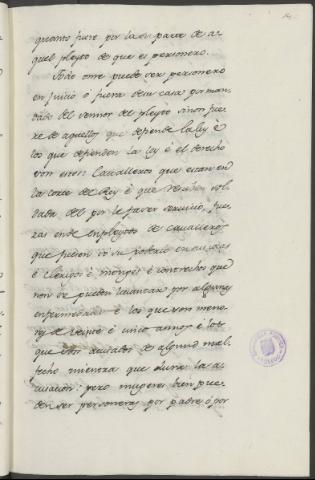 quanto fuere por la su parte de a-
quel pleyto de que es personero.
Todo ome puede ser personero
en juicio ó fuera de su casa por man-
dado del sennor del pleyto sinon fue-
re de aquellos que defiende la ley é
los que defienden la ley é el derecho
son estos Cavalleros que estan en
la corte del Rey é que resciben sol-
dada del por le facer servicio, fue-
ras ende en pleytos de cavalleros
que fuesen so su poderío
é clérigos é monges é contrechos que
non se pueden levantar por algunas
enfermedades é los que son meno-
res de veinte é cinco annos é los
que estos acusados de algund mal-
fecho mientra que durare la a-
cusación: pero mugeres bien pue-
den ser personeras por padre ó por